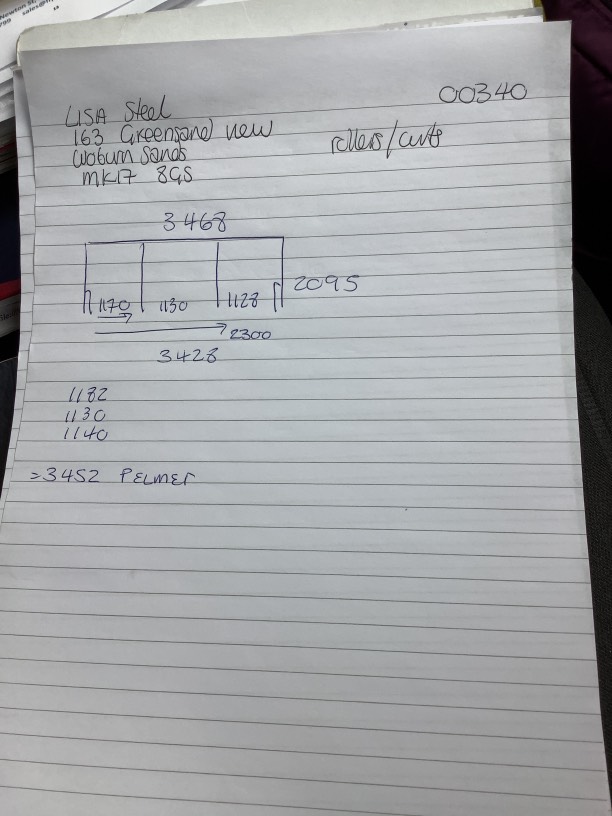 00340
LISA Steel
163 Greensand view
Woburn Sands
MK17 8GS
rollers/curts
3468
2095
1170 1130 1128
2300
3428
1182
1130
1140
=3452 PELMET